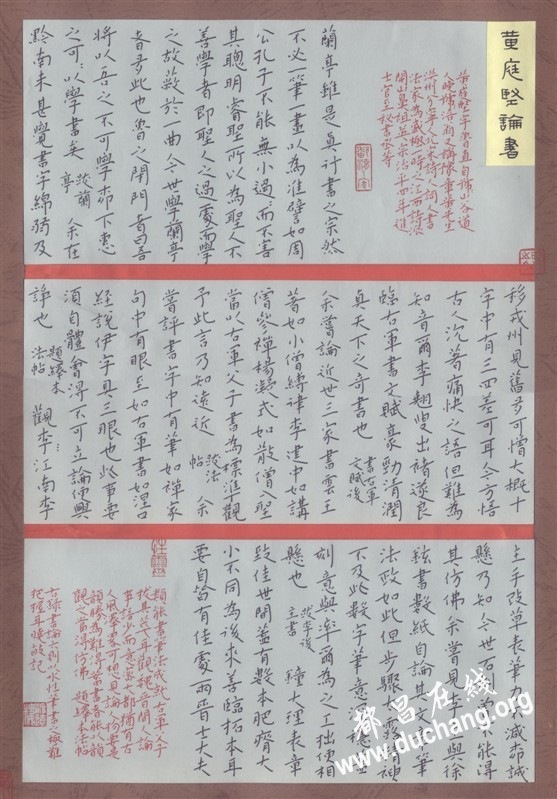 黄庭堅論書
黄庭堅字魯直自號山谷道
人晚號涪翁又稱豫章黄先生
洪州分寧人北宋詩人詞人書
法家為盛極一時之江西詩派
開山鼻祖英宗治平四年進
士官至秘書丞等
蘭亭雖是真行書之宗然
不必一筆一畫以為准譬如周
公孔子不能無小過過而不害
其聰明睿聖所以為聖人不
善學者即聖人之過處而學
之故蔽於一曲今世學蘭亭
者多此也魯之閉門者曰吾
將以吾之不可學柳下惠
之可可以學書矣 跋蘭亭 余在
黔南未甚覺書字綿弱及
移戎州見舊書多可憎大概十
字中有三四差可耳今方悟
古人沉著痛快之語但難為
知音爾李翹叟出褚遂良
臨右軍書文賦豪勁清潤
真天下之奇書也 書右軍文賦後
余嘗論近世三家書雲王
著如小僧縛律李建中如講
僧參禪楊凝式如散僧入聖
當以右軍父子書為標準觀
予此言乃知遠近 跋法帖 余
嘗評書字中有筆如禪家
句中有眼至如右軍書如涅槃
經說伊字具三眼也此事要
須自體會得不可立論便興
諍也 題絳本法帖 觀李江南李
主手改草表筆力不減柳誠
懸乃知今世石刻曾不能得
其仿佛余嘗見李主與徐
鉉書數紙自論其文章筆
法政如此但步驟太露精神
不及此數字筆意深穩蓋
刻意與率爾為之工拙便相
懸也 跋李後主書 鐘大理表章
致佳世間蓋有數本肥瘠大
小不同為後來善臨拓本耳
要自皆有佳處兩晉士大夫
類能書筆法成就右軍父子
拔其萃耳觀魏晉間人論
事語少而意密大都猶有古
人風澤略可想見論人物要是
韻勝為難得蓄書者能以韻
觀之當得仿佛 題絳本法帖
書論六則以水性筆書之難
把握耳 記
都昌在线
www.duchang.org